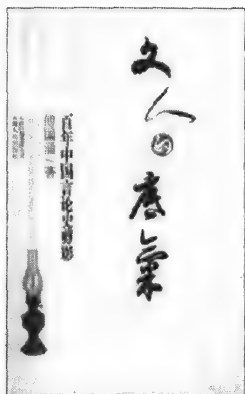 文人的底氣
百年中国言论史剪影
傅国涌/著